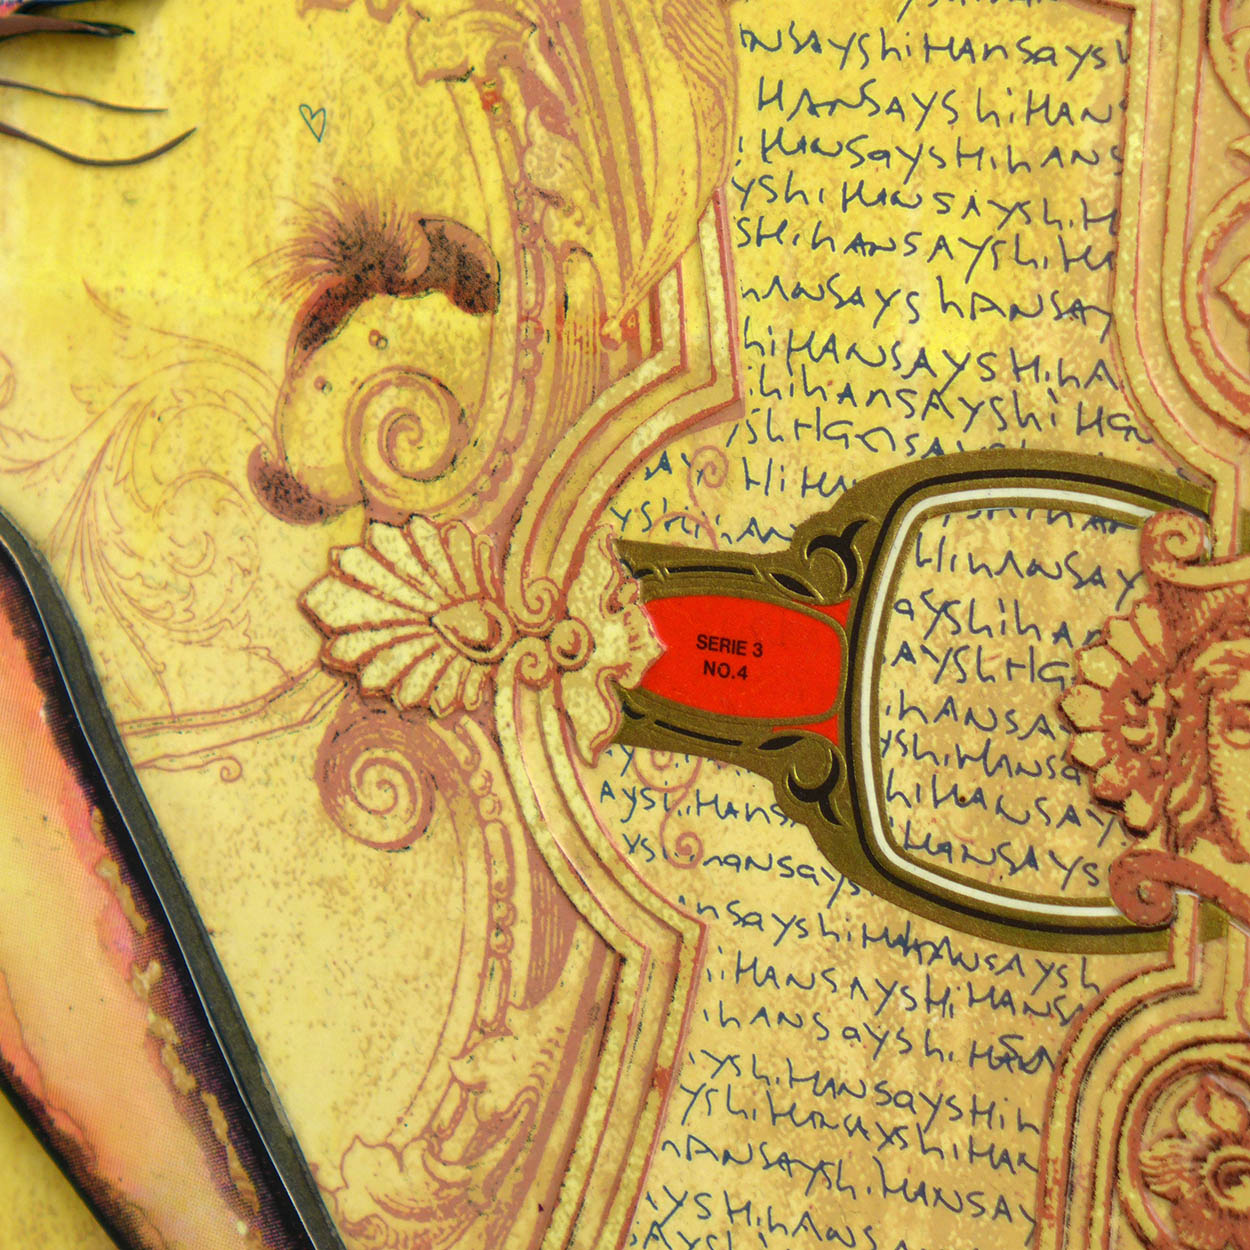 nSAYShiHAnSaysh
HANSAYShiHAN
iHANSaysHihANS
yShiHANSAYShiH
SHihANSAYShiHA
hANSAYShANSAY
hiHANSAYSHihA
ihihANSAYShiHa
yShHanSay
AY HiHA
yShihAN
YShihAN
HihANSAY
aySYhihAn
AYShHa
SERIE 3
NO.4
ihANSA
yShiHANSa
AyShiHAnS
hiHANSAY
ySi nanSays
iHANSAYS
nSayShiHAhANSAYSh
iHANSAYSHiHANS
ihANSayShiHAN
iyShiHANSaySHih
yShiHANSayShiHAN
hANSAYShiHANSAY
iYSHihANS
iAYShiHANSay